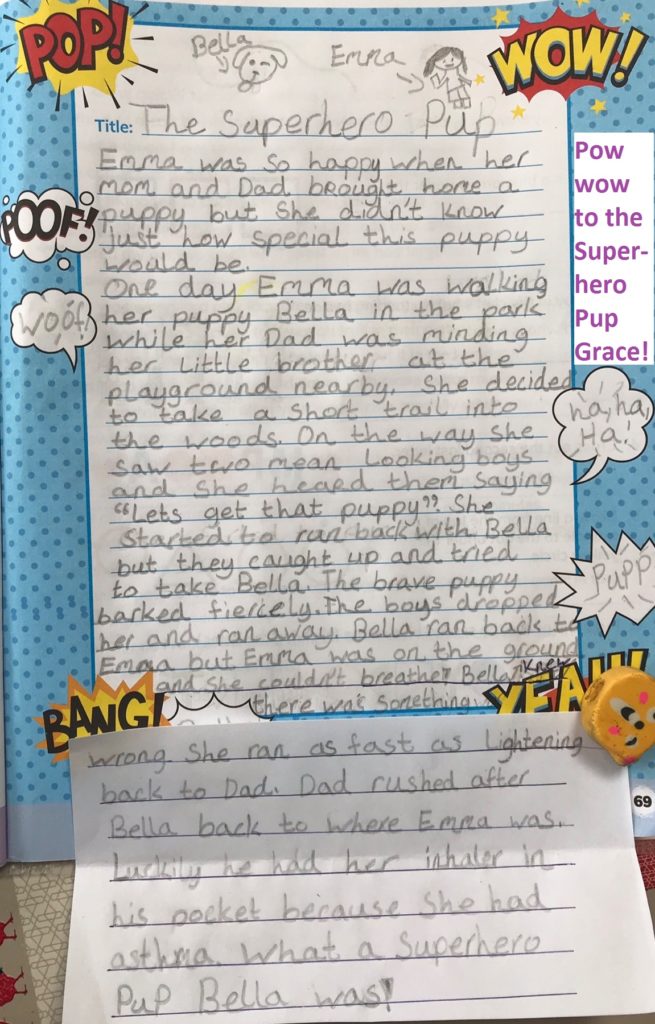 POP!
Bella
Emma
WOW!
Title: The Superhero Pup
Emma was so happy when her
mom and Dad brought home a
puppy but she didn't know
just how special this puppy
would be.
One day Emma was walking
her puppy Bella in the park
while her Dad was minding
her little brother at the
playground nearby. She decided
to take a short trail into
the woods. On the way she
saw two mean looking boys
and she heaed them saying
"Lets get that puppy". She
started to run back with Bella
but they caught up and tried
to take Bella. The brave puppy
barked fiercely. The boys dropped
her and ran away. Bella ran back to
Emma but Emma was on the ground
and she couldn't breathe. Bella knew
there was something
wrong. She ran as fast as lightening
back to Dad. Dad rushed after
Bella back to where Emma was.
Luckily he had her inhaler in
his pocket because she had
asthma. What a Superhero
Pup Bella was!
POOF!
woof!
Pow
wow
to the
Super-
hero
Pup
Grace!
ha, ha,
Ha!
PUPP
BANG!
YEAH!
69